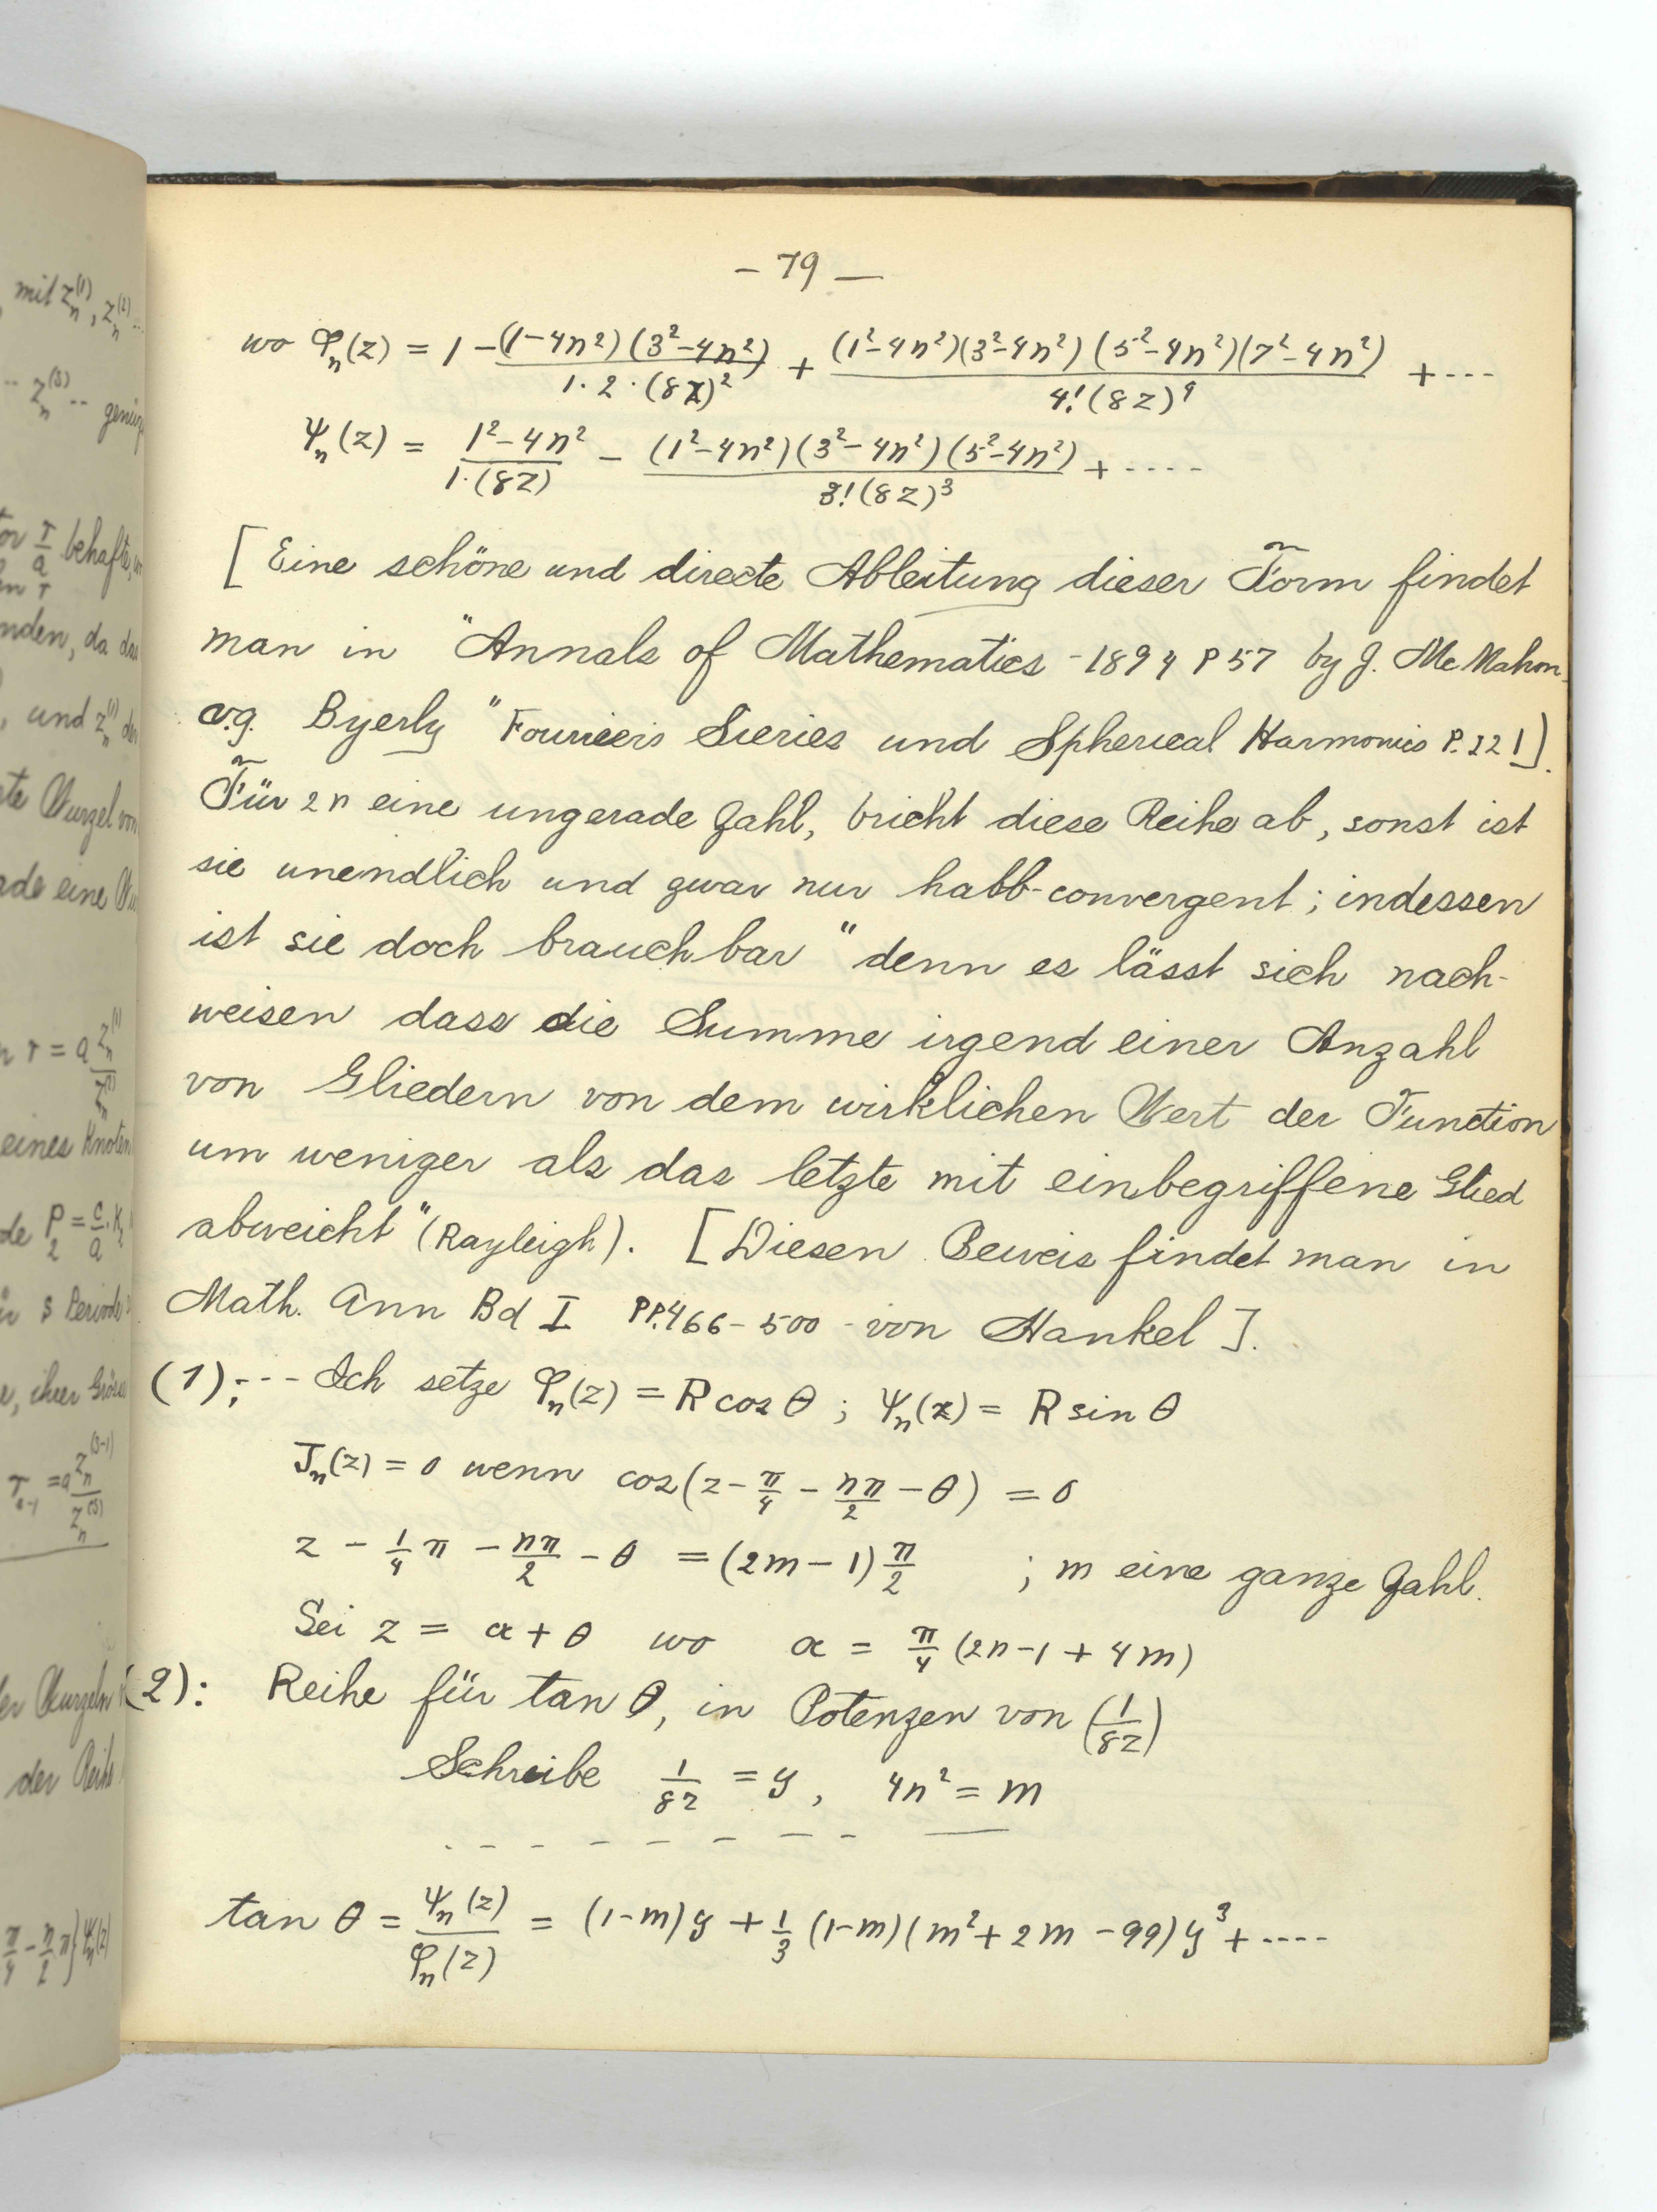 mit z_n^(1), z_n^(2) ...
.. z_n^(s) ..
r/a
und z_n^(1)
Wurzel von
eines Knoten
P_2 = c/a · K_2
der Reihe
– 79 —
wo φ_n(z) = 1 – (1–4n²)(3²–4n²) / 1·2·(8z)² + (1²–4n²)(3²–4n²)(5²–4n²)(7²–4n²) / 4!(8z)⁴ + ---
ψ_n(z) = 1²–4n² / 1·(8z) – (1²–4n²)(3²–4n²)(5²–4n²) / 3!(8z)³ + ----
[ Eine schöne und directe Ableitung dieser Form findet
man in "Annals of Mathematics - 1894 P 57 by J. Mc Mahon.
v.g. Byerly "Fouriers Series und Spherical Harmonics P. 221].
Für 2n eine ungerade Zahl, bricht diese Reihe ab, sonst ist
sie unendlich und zwar nur halb-convergent; indessen
ist sie doch brauchbar "denn es lässt sich nach-
weisen dass die Summe irgend einer Anzahl
von Gliedern von dem wirklichen Wert der Function
um weniger als das letzte mit einbegriffene Glied
abweicht" (Rayleigh). [Diesen Beweis findet man in
Math. Ann Bd I PP. 466–500 – von Hankel ].
(1); --- Ich setze φ_n(z) = R cos θ ; ψ_n(z) = R sin θ
J_n(z) = 0 wenn cos(z – π/4 – nπ/2 – θ) = 0
z – 1/4 π – nπ/2 – θ = (2m – 1) π/2 ; m eine ganze Zahl.
Sei z = α + θ wo α = π/4 (2n – 1 + 4m)
(2): Reihe für tan θ, in Potenzen von (1/8z)
Schreibe 1/8z = y, 4n² = m
tan θ = ψ_n(z) / φ_n(z) = (1–m)y + 1/3 (1–m)(m² + 2m – 99) y³ + ----